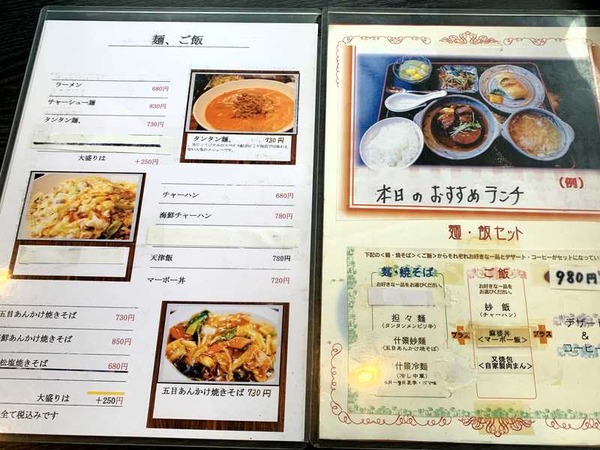 麺、ご飯
ラーメン 680円
チャーシュー麺 830円
タンタン麺、 730円
大盛りは +250円
タンタン麺、 730円
チャーハン 680円
海鮮チャーハン 780円
天津飯 780円
マーボー丼 720円
五目あんかけ焼きそば 730円
海鮮あんかけ焼きそば 850円
塩焼きそば 660円
大盛りは +250円
全て税込みです
五目あんかけ焼きそば 730円
(例)
本日のおすすめランチ
麺・飯セット
下記のく麺・焼そば><ご飯>からそれぞれお好きな一品とデザート・コーヒーがセットになってい
麺・焼そば
お好きな一品を
お選びください。
担々麺
(タンタンメンピリ辛)
什景炒麺
(五目あんかけ焼そば)
什景冷麺
(冷し中華)
プラス
ご飯
お好きな一品を
お選びください。
炒飯
(チャーハン)
麻婆丼
<マーボー飯>
叉焼包
<自家製肉まん>
プラス
980円
デザート
&
コーヒー